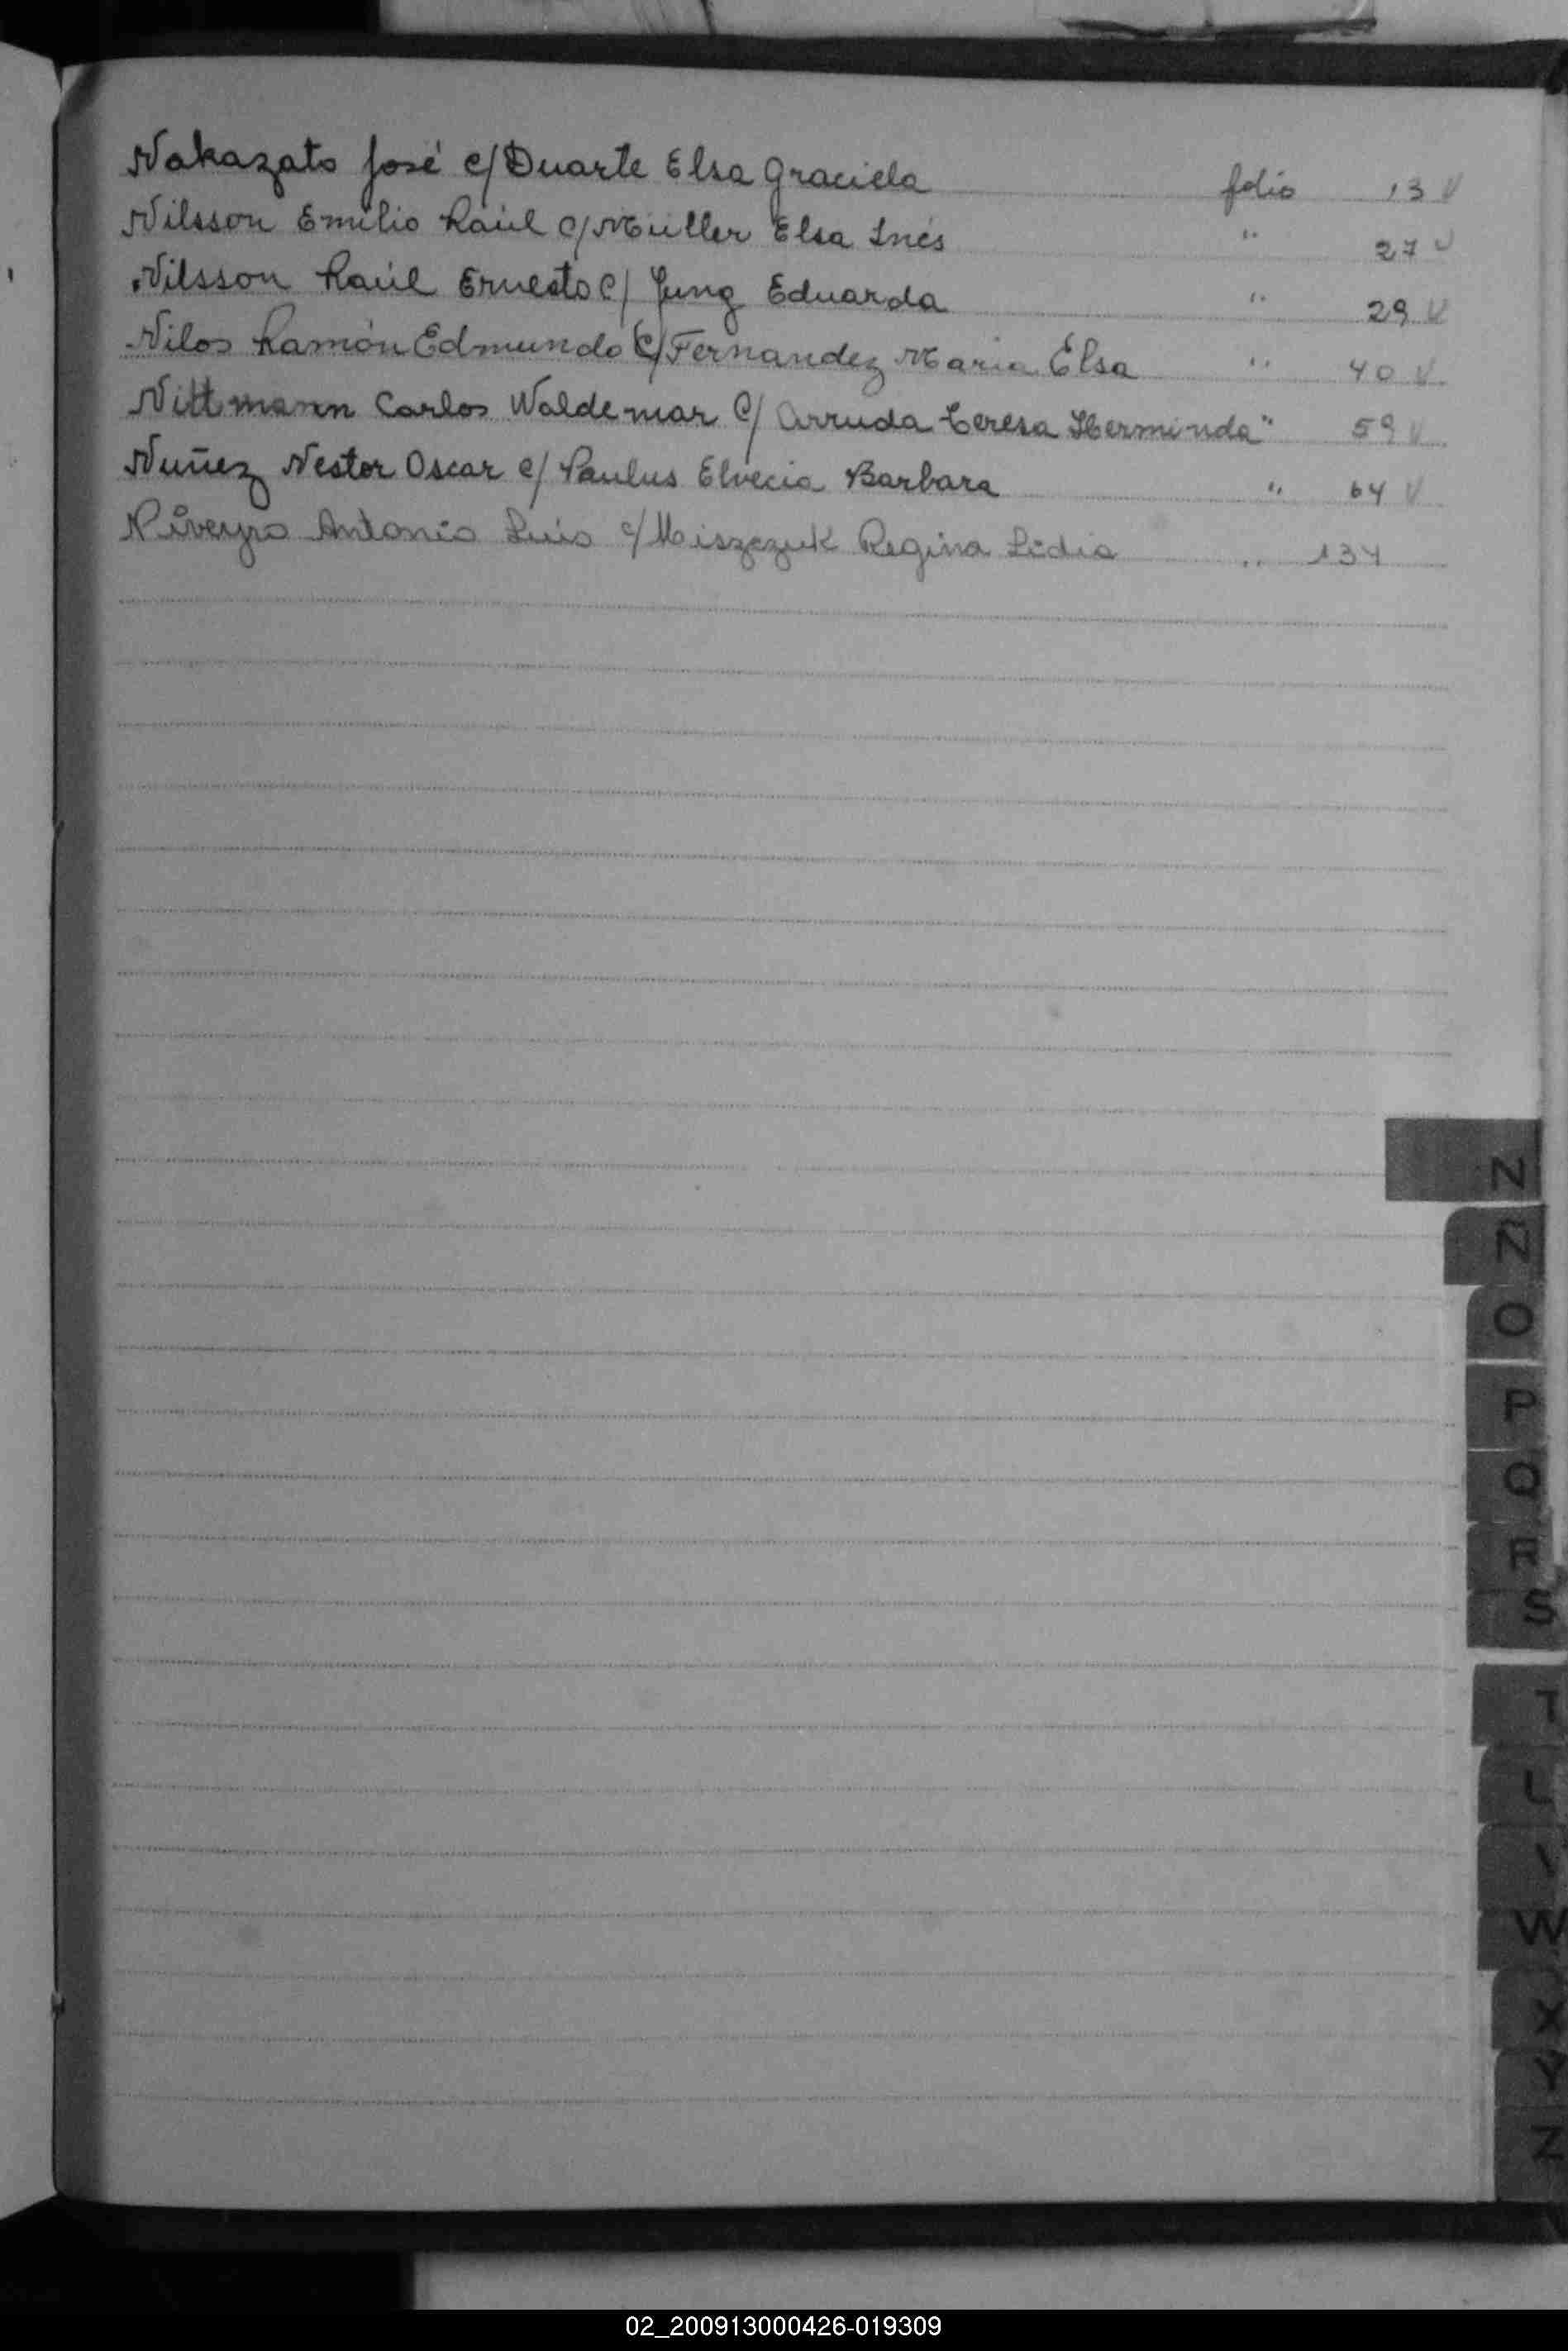 Nakazato José c/ Duarte Elsa Graciela folio 13 V
Nilsson Emilio Raúl c/ Müller Elsa Inés " 27 V
Nilsson Raúl Ernesto c/ Jung Eduarda " 29 V
Nilos Ramón Edmundo c/ Fernandez Maria Elsa " 40 V
Nittmann Carlos Waldemar c/ Arruda Teresa Herminda " 59 V
Nuñez Nestor Oscar c/ Paulus Elvecia Barbara " 64 V
Niveyro Antonio Luis c/ Miszczuk Regina Lidia " 134
N
Ñ
O
P
Q
R
S
T
W
X
Y
Z
02_200913000426-019309